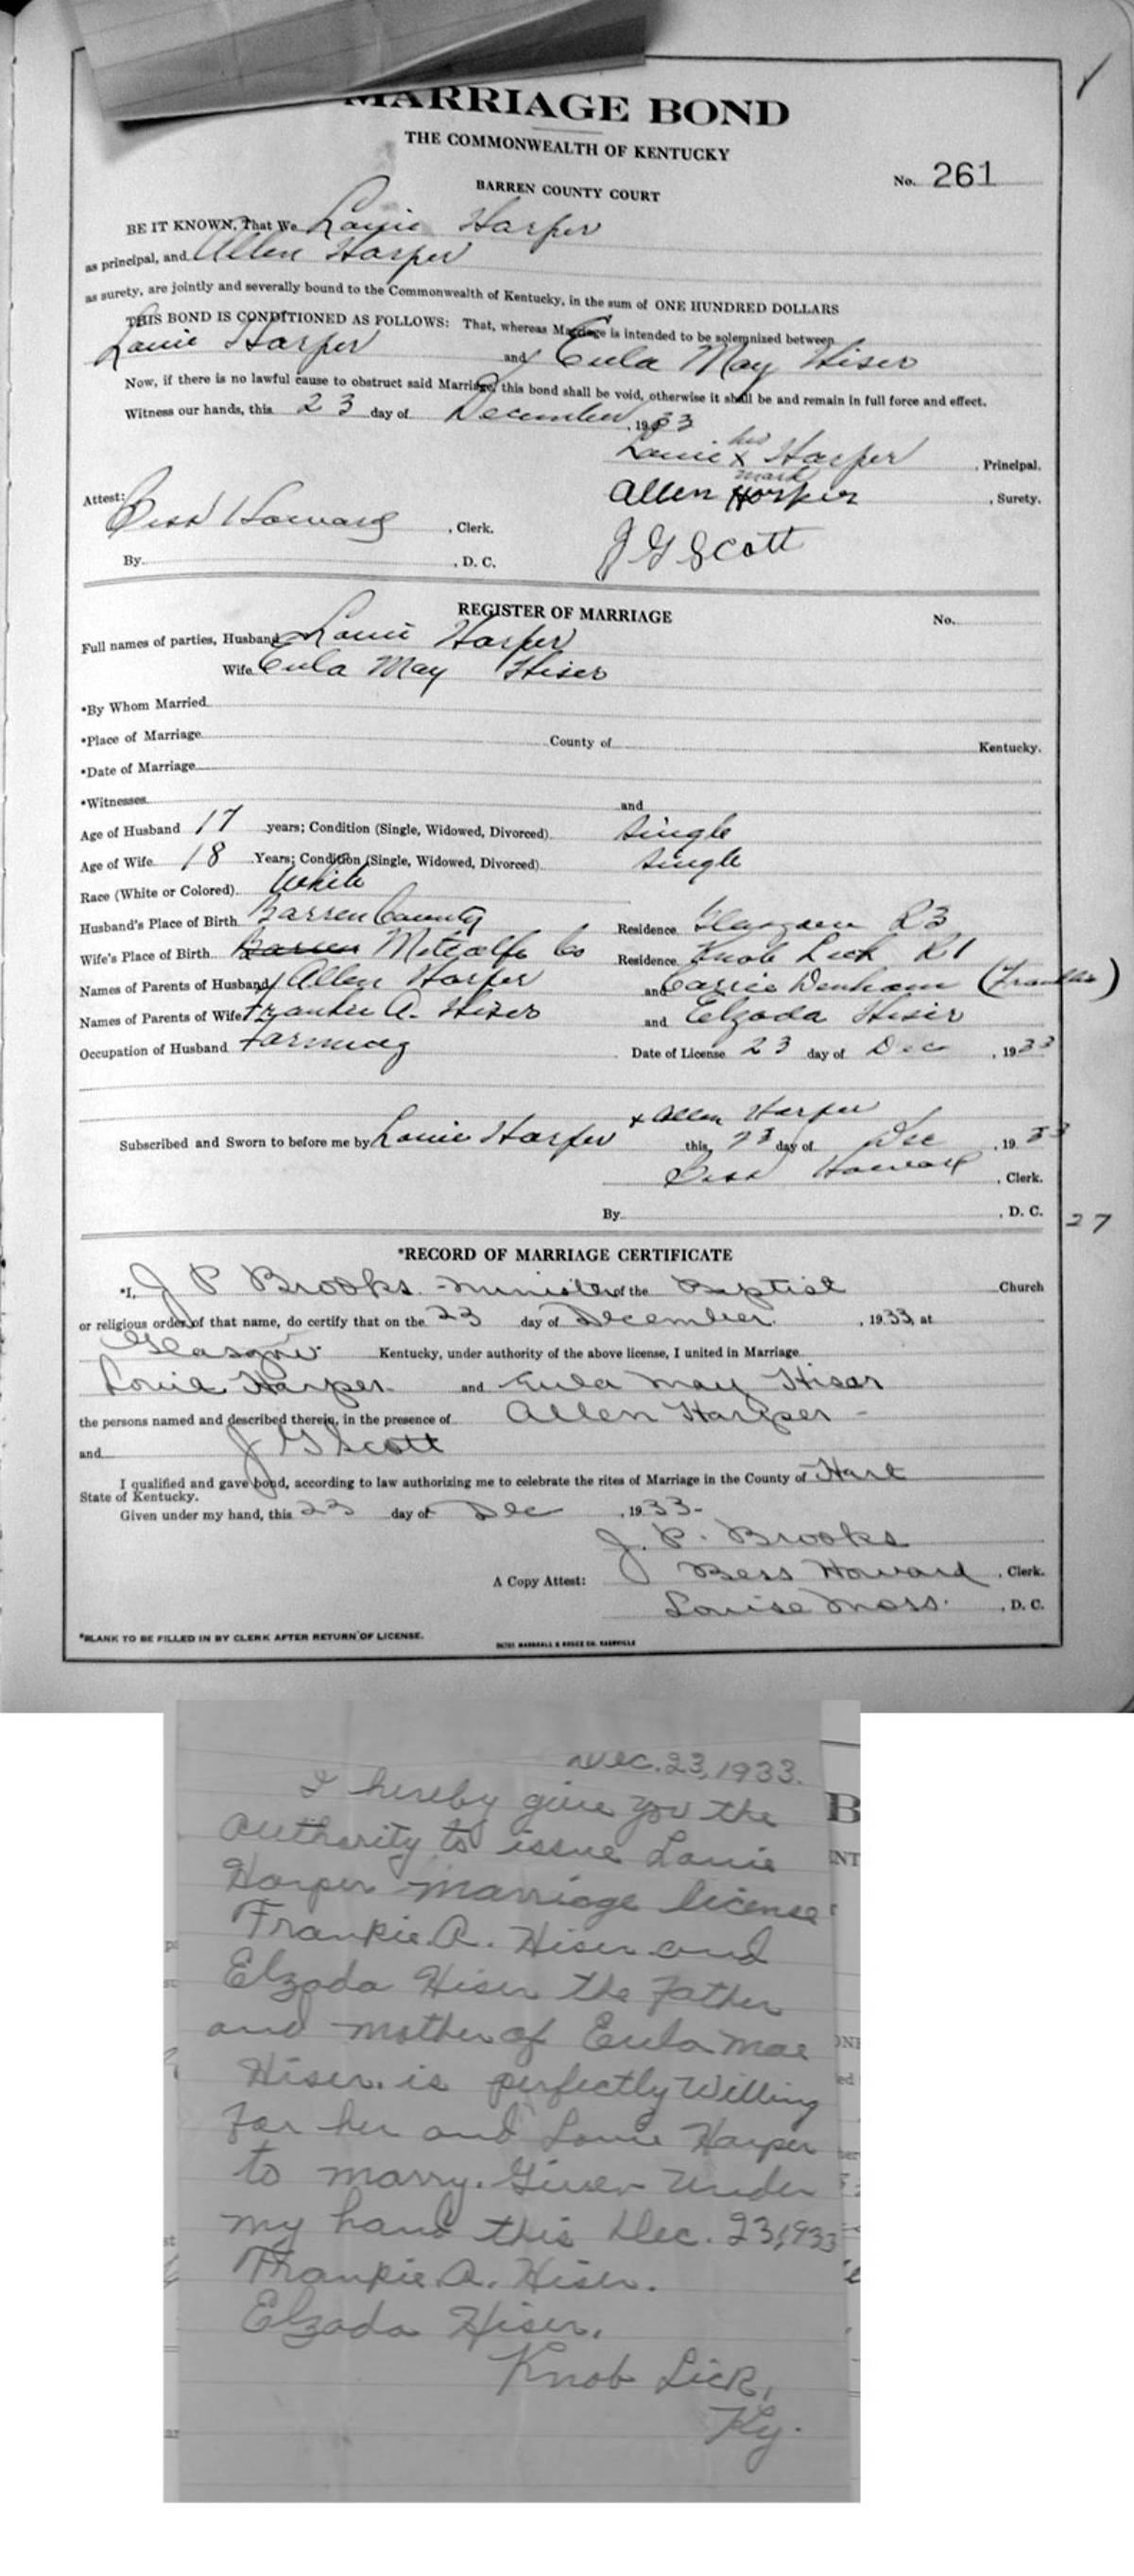 MARRIAGE BOND
THE COMMONWEALTH OF KENTUCKY
No. 261
BARREN COUNTY COURT
BE IT KNOWN, That We Louie Harper
as principal, and Allen Harper
as surety, are jointly and severally bound to the Commonwealth of Kentucky, in the sum of ONE HUNDRED DOLLARS
THIS BOND IS CONDITIONED AS FOLLOWS: That, whereas Marriage is intended to be solemnized between
Louie Harper and Eula May Hiser
Now, if there is no lawful cause to obstruct said Marriage, this bond shall be void, otherwise it shall be and remain in full force and effect.
Witness our hands, this 23 day of December, 1933
his
Louie x Harper, Principal.
mark
Allen Harper, Surety.
Attest: Bess Howard, Clerk.
J G Scott
By , D. C.
REGISTER OF MARRIAGE No.
Full names of parties, Husband Louie Harper
Wife Eula May Hiser
*By Whom Married
*Place of Marriage County of Kentucky.
*Date of Marriage
*Witnesses and
Age of Husband 17 years; Condition (Single, Widowed, Divorced) Single
Age of Wife 18 Years; Condition (Single, Widowed, Divorced) Single
Race (White or Colored) White
Husband's Place of Birth Barren County Residence Glasgow R3
Wife's Place of Birth Barren Metcalfe Co Residence Knob Lick R1
Names of Parents of Husband Allen Harper and Carrie Denham (Franklin)
Names of Parents of Wife Frankie A. Hiser and Elzada Hiser
Occupation of Husband Farming Date of License 23 day of Dec, 1933
x Allen Harper
Subscribed and Sworn to before me by Louie Harper this, 23 day of Dec, 1933
Bess Howard, Clerk.
By , D. C.
27
*RECORD OF MARRIAGE CERTIFICATE
*I, J P Brooks - Minister of the Baptist Church
or religious order of that name, do certify that on the 23 day of December, 1933, at
Glasgow Kentucky, under authority of the above license, I united in Marriage
Louie Harper and Eula May Hiser
the persons named and described therein, in the presence of Allen Harper -
and J G Scott
I qualified and gave bond, according to law authorizing me to celebrate the rites of Marriage in the County of Hart
State of Kentucky.
Given under my hand, this 23 day of Dec, 1933-
J. P. Brooks
A Copy Attest: Bess Howard, Clerk.
Louise Moss, D. C.
*BLANK TO BE FILLED IN BY CLERK AFTER RETURN OF LICENSE.
Dec. 23, 1933.
I hereby give you the
authority to issue Louie
Harper marriage license
Frankie A. Hiser and
Elzada Hiser the Father
and mother of Eula Mae
Hiser. is perfectly Willing
For her and Louie Harper
to marry. Given under
my hand this Dec. 23, 1933
Frankie A. Hiser.
Elzada Hiser.
Knob Lick,
Ky.